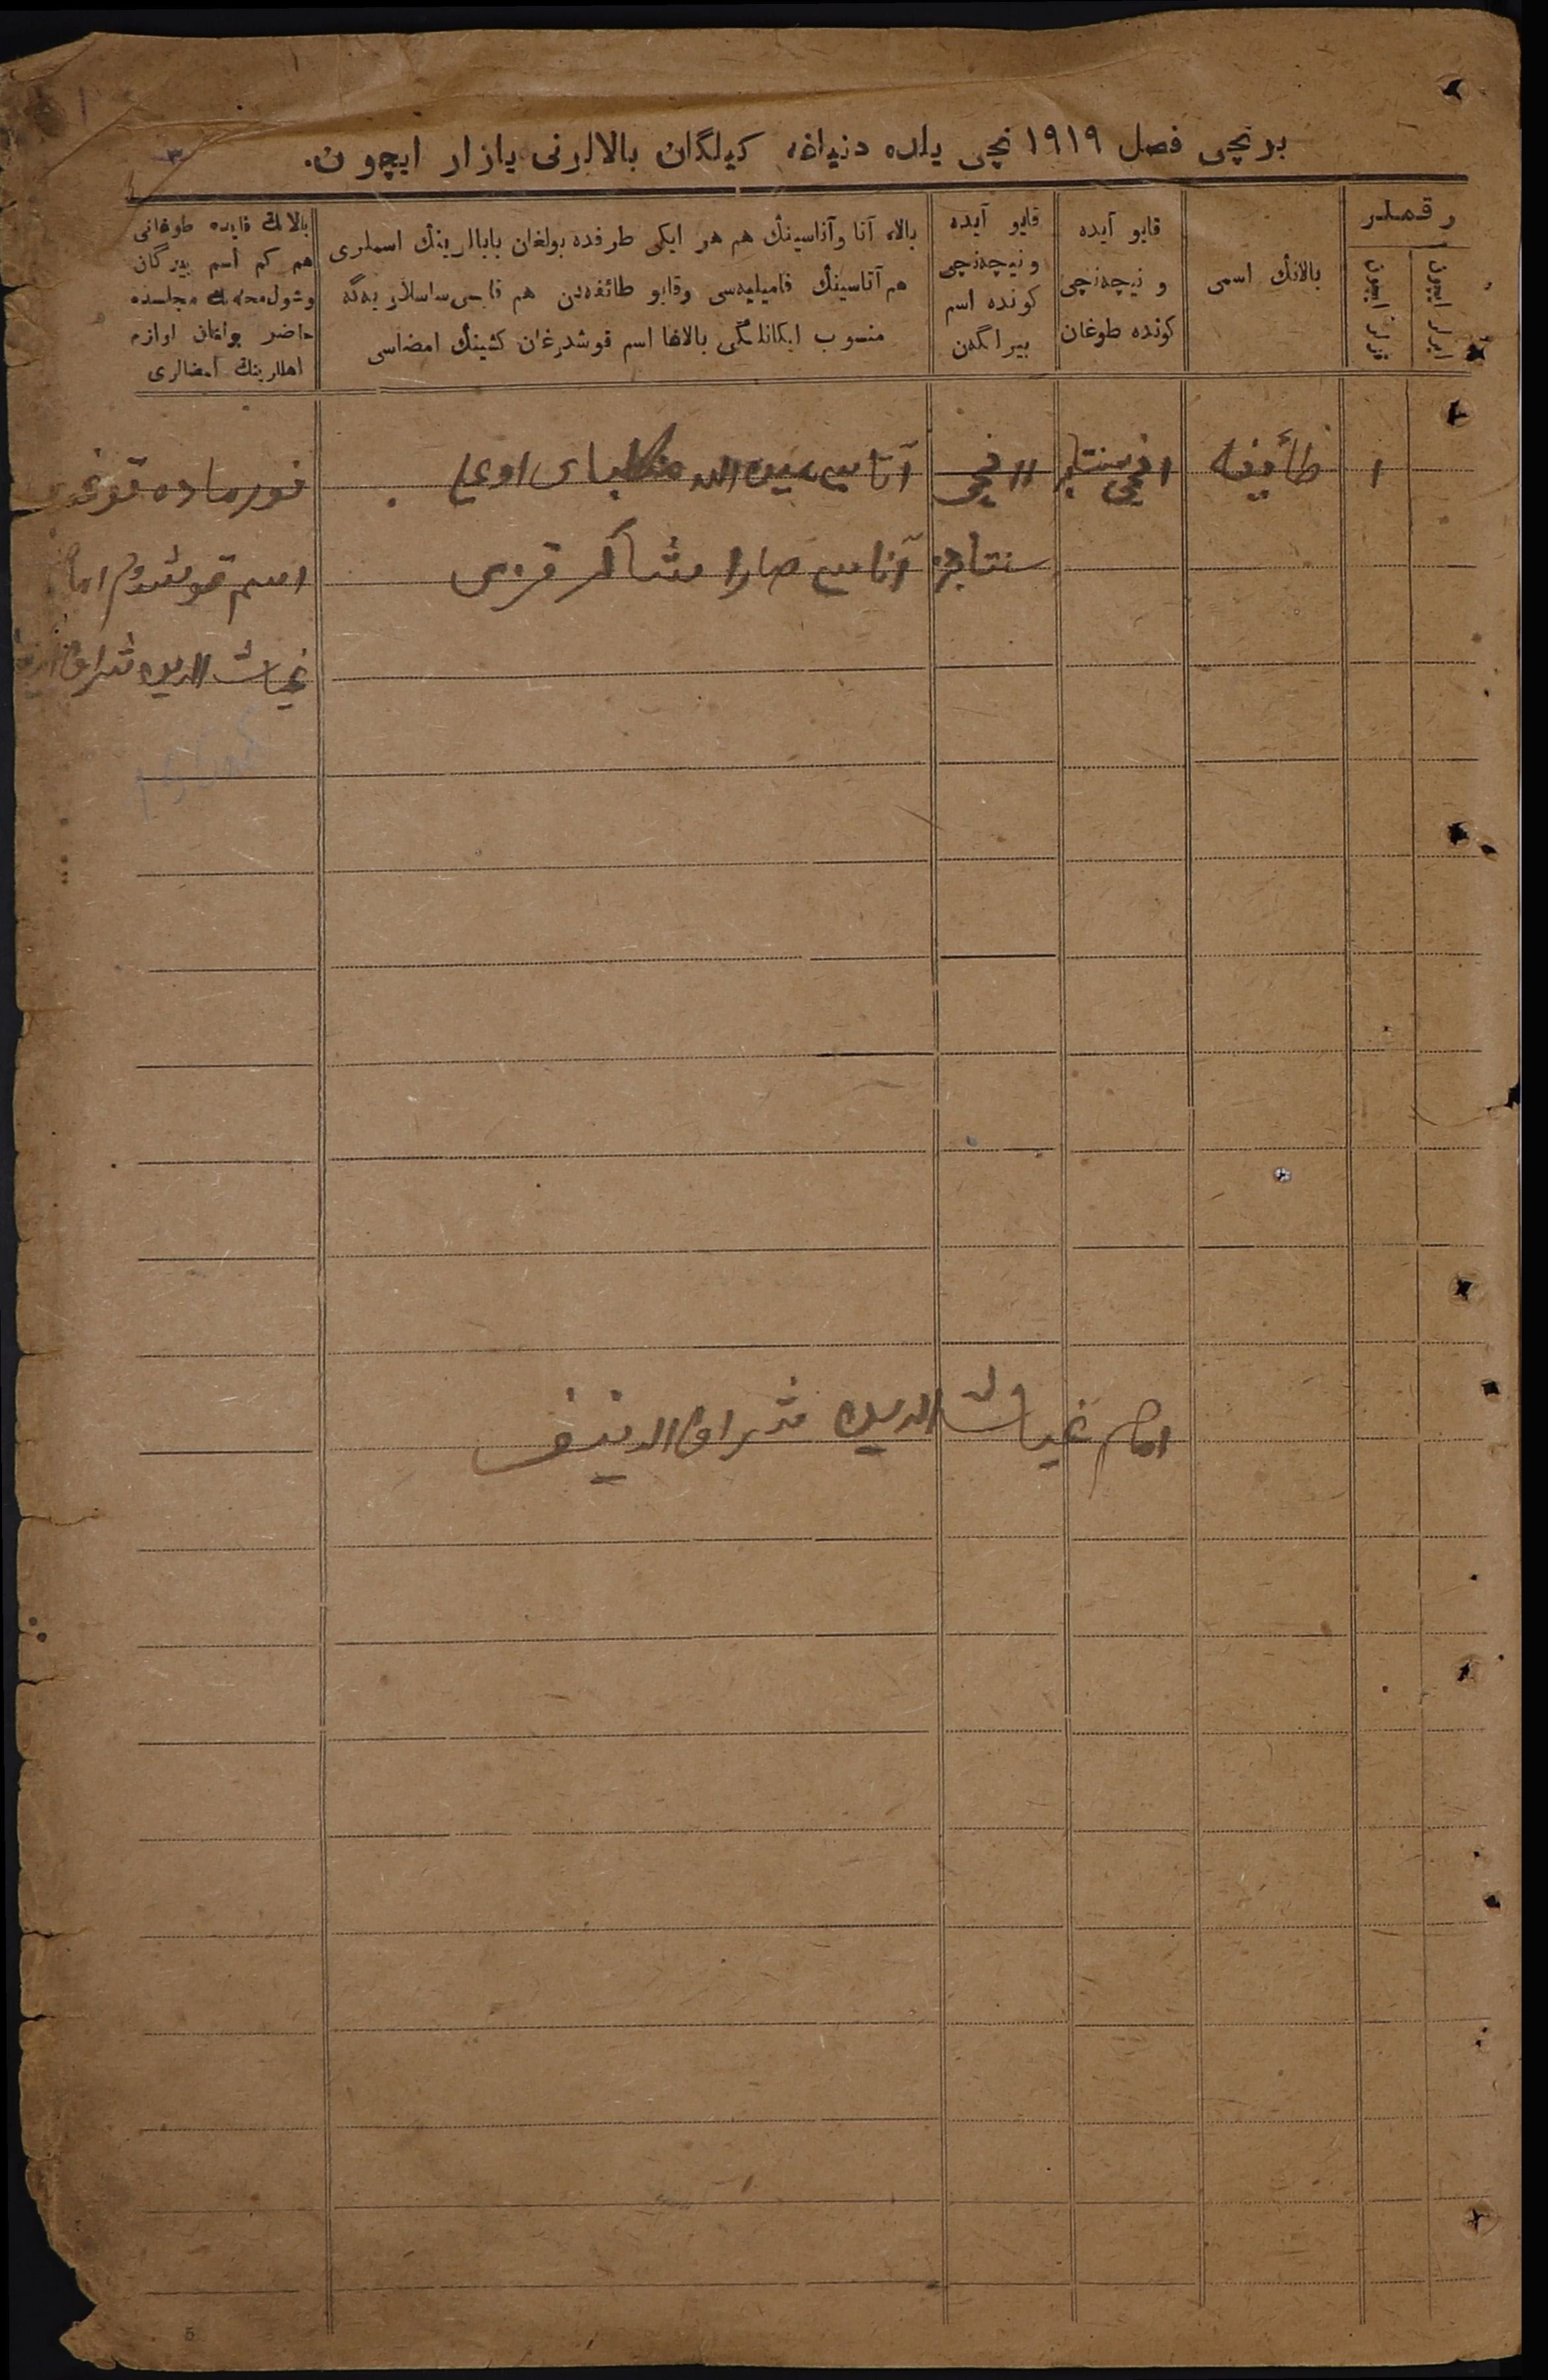 برنچی فصل ۱۹۱۹ نچی یلده دنیاغه کیلگان بالالرنی یازار ایچون.
۳
رقملر
ایرلر ایچون
قزلر ایچون
بالانڭ اسمی
قایو آیده
و نیچەنچی
کونده طوغان
قایو آیده
و نیچەنچی
کونده اسم
بیرلگەن
بالا، آتا وآناسینڭ هم هر ایکی طرفده بولغان بابالرینڭ اسملری
هم آتاسینڭ فامیلیەسی وقایو طائفەدن هم قایسی ساسلاویەگە
منسوب ایکانلگی بالاغا اسم قوشدرغان کشینڭ امضاسی
بالانڭ قایده طوغانی
هم کم اسم بیرگان
وشول محلەنڭ مجلسده
حاضر بولغان اوازه
اهللرینڭ امضالری
۱
طائیفه
۱ نچی سنتابر
۱۱ نچی
سنتابر
آتاسی الله اوغلی
آناسی صارا شاکر قزی
اسم قوشدم امام
غیاث الدین
امام غیاث الدین شرف الدینف
5